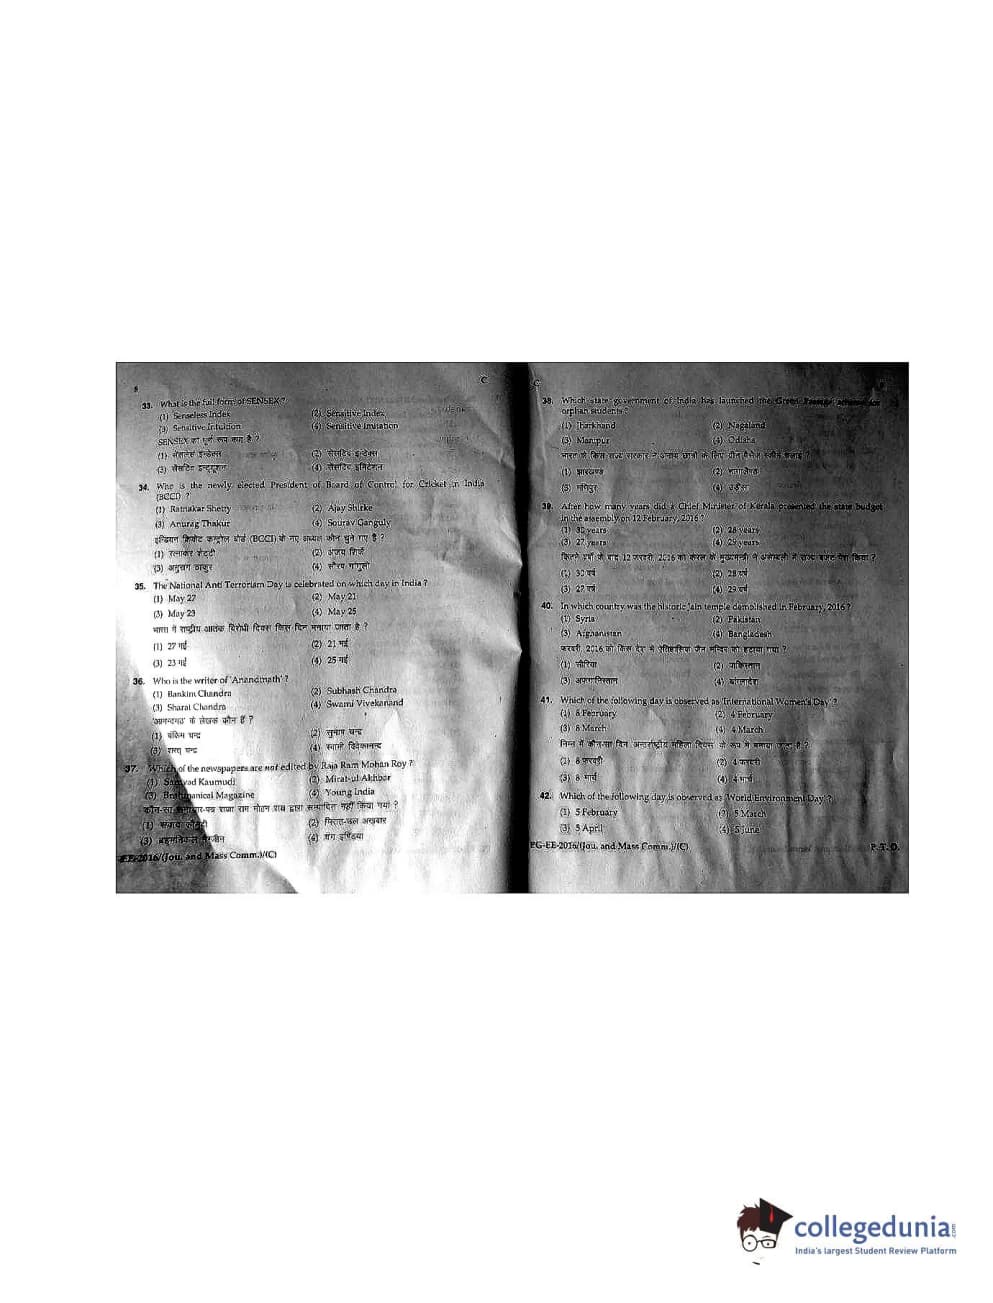 8
C
33. What is the full form of SENSEX ?
(1) Senseless Index
(2) Sensitive Index
(3) Sensitive Intuition
(4) Sensitive Imitation
SENSEX का पूर्ण रूप क्या है ?
(1) सेंसलेस इन्डेक्स
(2) सेंसटिव इन्डेक्स
(3) सेंसटिव इन्ट्यूशन
(4) सेंसटिव इमिटेशन
34. Who is the newly elected President of Board of Control for Cricket in India
(BCCI) ?
(1) Ratnakar Shetty
(2) Ajay Shirke
(3) Anurag Thakur
(4) Sourav Ganguly
इन्डियन क्रिकेट कन्ट्रोल बोर्ड (BCCI) के नए अध्यक्ष कौन चुने गए हैं ?
(1) रत्नाकर शेट्टी
(2) अजय शिर्के
(3) अनुराग ठाकुर
(4) सौरव गांगुली
35. The National Anti Terrorism Day is celebrated on which day in India ?
(1) May 27
(2) May 21
(3) May 23
(4) May 25
भारत में राष्ट्रीय आतंक विरोधी दिवस किस दिन मनाया जाता है ?
(1) 27 मई
(2) 21 मई
(3) 23 मई
(4) 25 मई
36. Who is the writer of 'Anandmath' ?
(1) Bankim Chandra
(2) Subhash Chandra
(3) Sharat Chandra
(4) Swami Vivekanand
'आनन्दमठ' के लेखक कौन हैं ?
(1) बंकिम चन्द्र
(2) सुभाष चन्द्र
(3) शरत् चन्द्र
(4) स्वामी विवेकानन्द
37. Which of the newspapers are not edited by Raja Ram Mohan Roy ?
(1) Samvad Kaumudi
(2) Mirat-ul Akhbar
(3) Brahmanical Magazine
(4) Young India
कौन-सा समाचार-पत्र राजा राम मोहन राय द्वारा सम्पादित नहीं किया गया ?
(1) संवाद कौमुदी
(2) मिरात-उल अखबार
(3) ब्रहमनिकल मैग्जीन
(4) यंग इण्डिया
EE-2016/(Jou. and Mass Comm.)/(C)
C
38. Which state government of India has launched the Green Passage scheme for
orphan students ?
(1) Jharkhand
(2) Nagaland
(3) Manipur
(4) Odisha
भारत की किस राज्य सरकार ने अनाथ छात्रों के लिए ग्रीन पैसेज स्कीम चलाई ?
(1) झारखण्ड
(2) नागालैण्ड
(3) मणिपुर
(4) उड़ीसा
39. After how many years did a Chief Minister of Kerala presented the state budget
in the assembly on 12 February, 2016 ?
(1) 30 years
(2) 28 years
(3) 27 years
(4) 29 years
कितने वर्षों के बाद 12 फरवरी, 2016 को केरल के मुख्यमन्त्री ने असेम्बली में राज्य बजट पेश किया ?
(1) 30 वर्ष
(2) 28 वर्ष
(3) 27 वर्ष
(4) 29 वर्ष
40. In which country was the historic Jain temple demolished in February, 2016 ?
(1) Syria
(2) Pakistan
(3) Afghanistan
(4) Bangladesh
फरवरी, 2016 को किस देश में ऐतिहासिक जैन मन्दिर को हटाया गया ?
(1) सीरिया
(2) पाकिस्तान
(3) अफगानिस्तान
(4) बांग्लादेश
41. Which of the following day is observed as 'International Women's Day' ?
(1) 8 February
(2) 4 February
(3) 8 March
(4) 4 March
निम्न में कौन-सा दिन अन्तर्राष्ट्रीय महिला दिवस के रूप में मनाया जाता है ?
(1) 8 फरवरी
(2) 4 फरवरी
(3) 8 मार्च
(4) 4 मार्च
42. Which of the following day is observed as 'World Environment Day' ?
(1) 5 February
(2) 5 March
(3) 5 April
(4) 5 June
PG-EE-2016/(Jou. and Mass Comm.)/(C)
P. T. O.
collegedunia.com
India's largest Student Review Platform